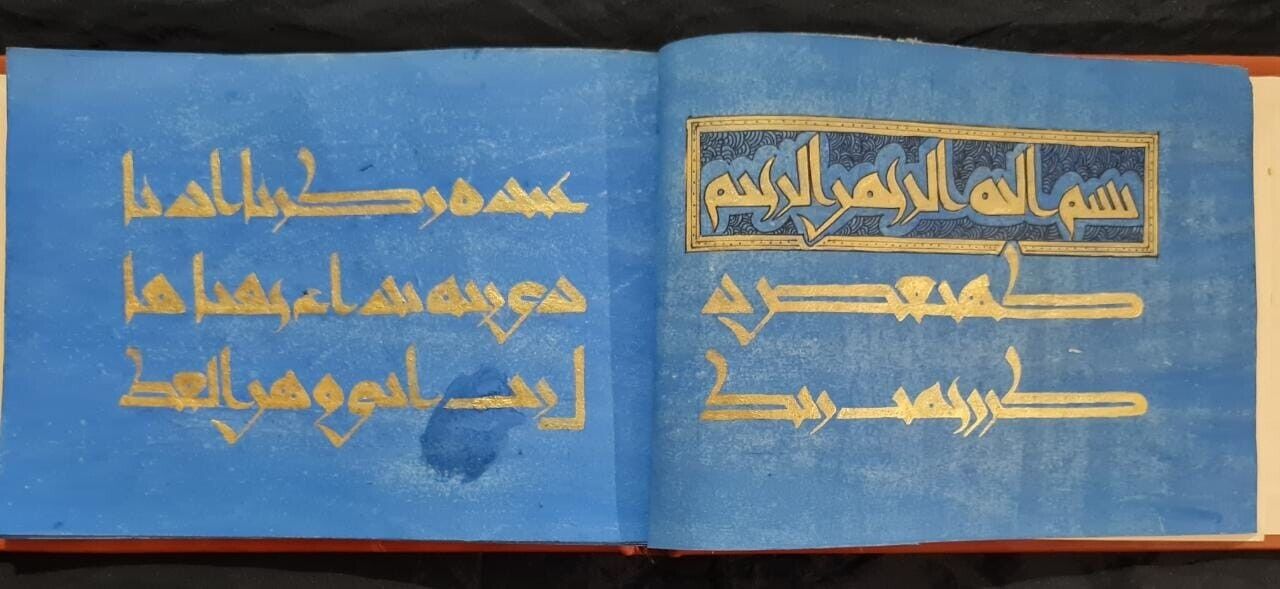 بسم الله الرحمن الرحيم
كهيعص ذ
كر رحمت ربك
عبده زكريا اذ نا
دى ربه نداء خفيا قا
ل رب انى وهن العظ